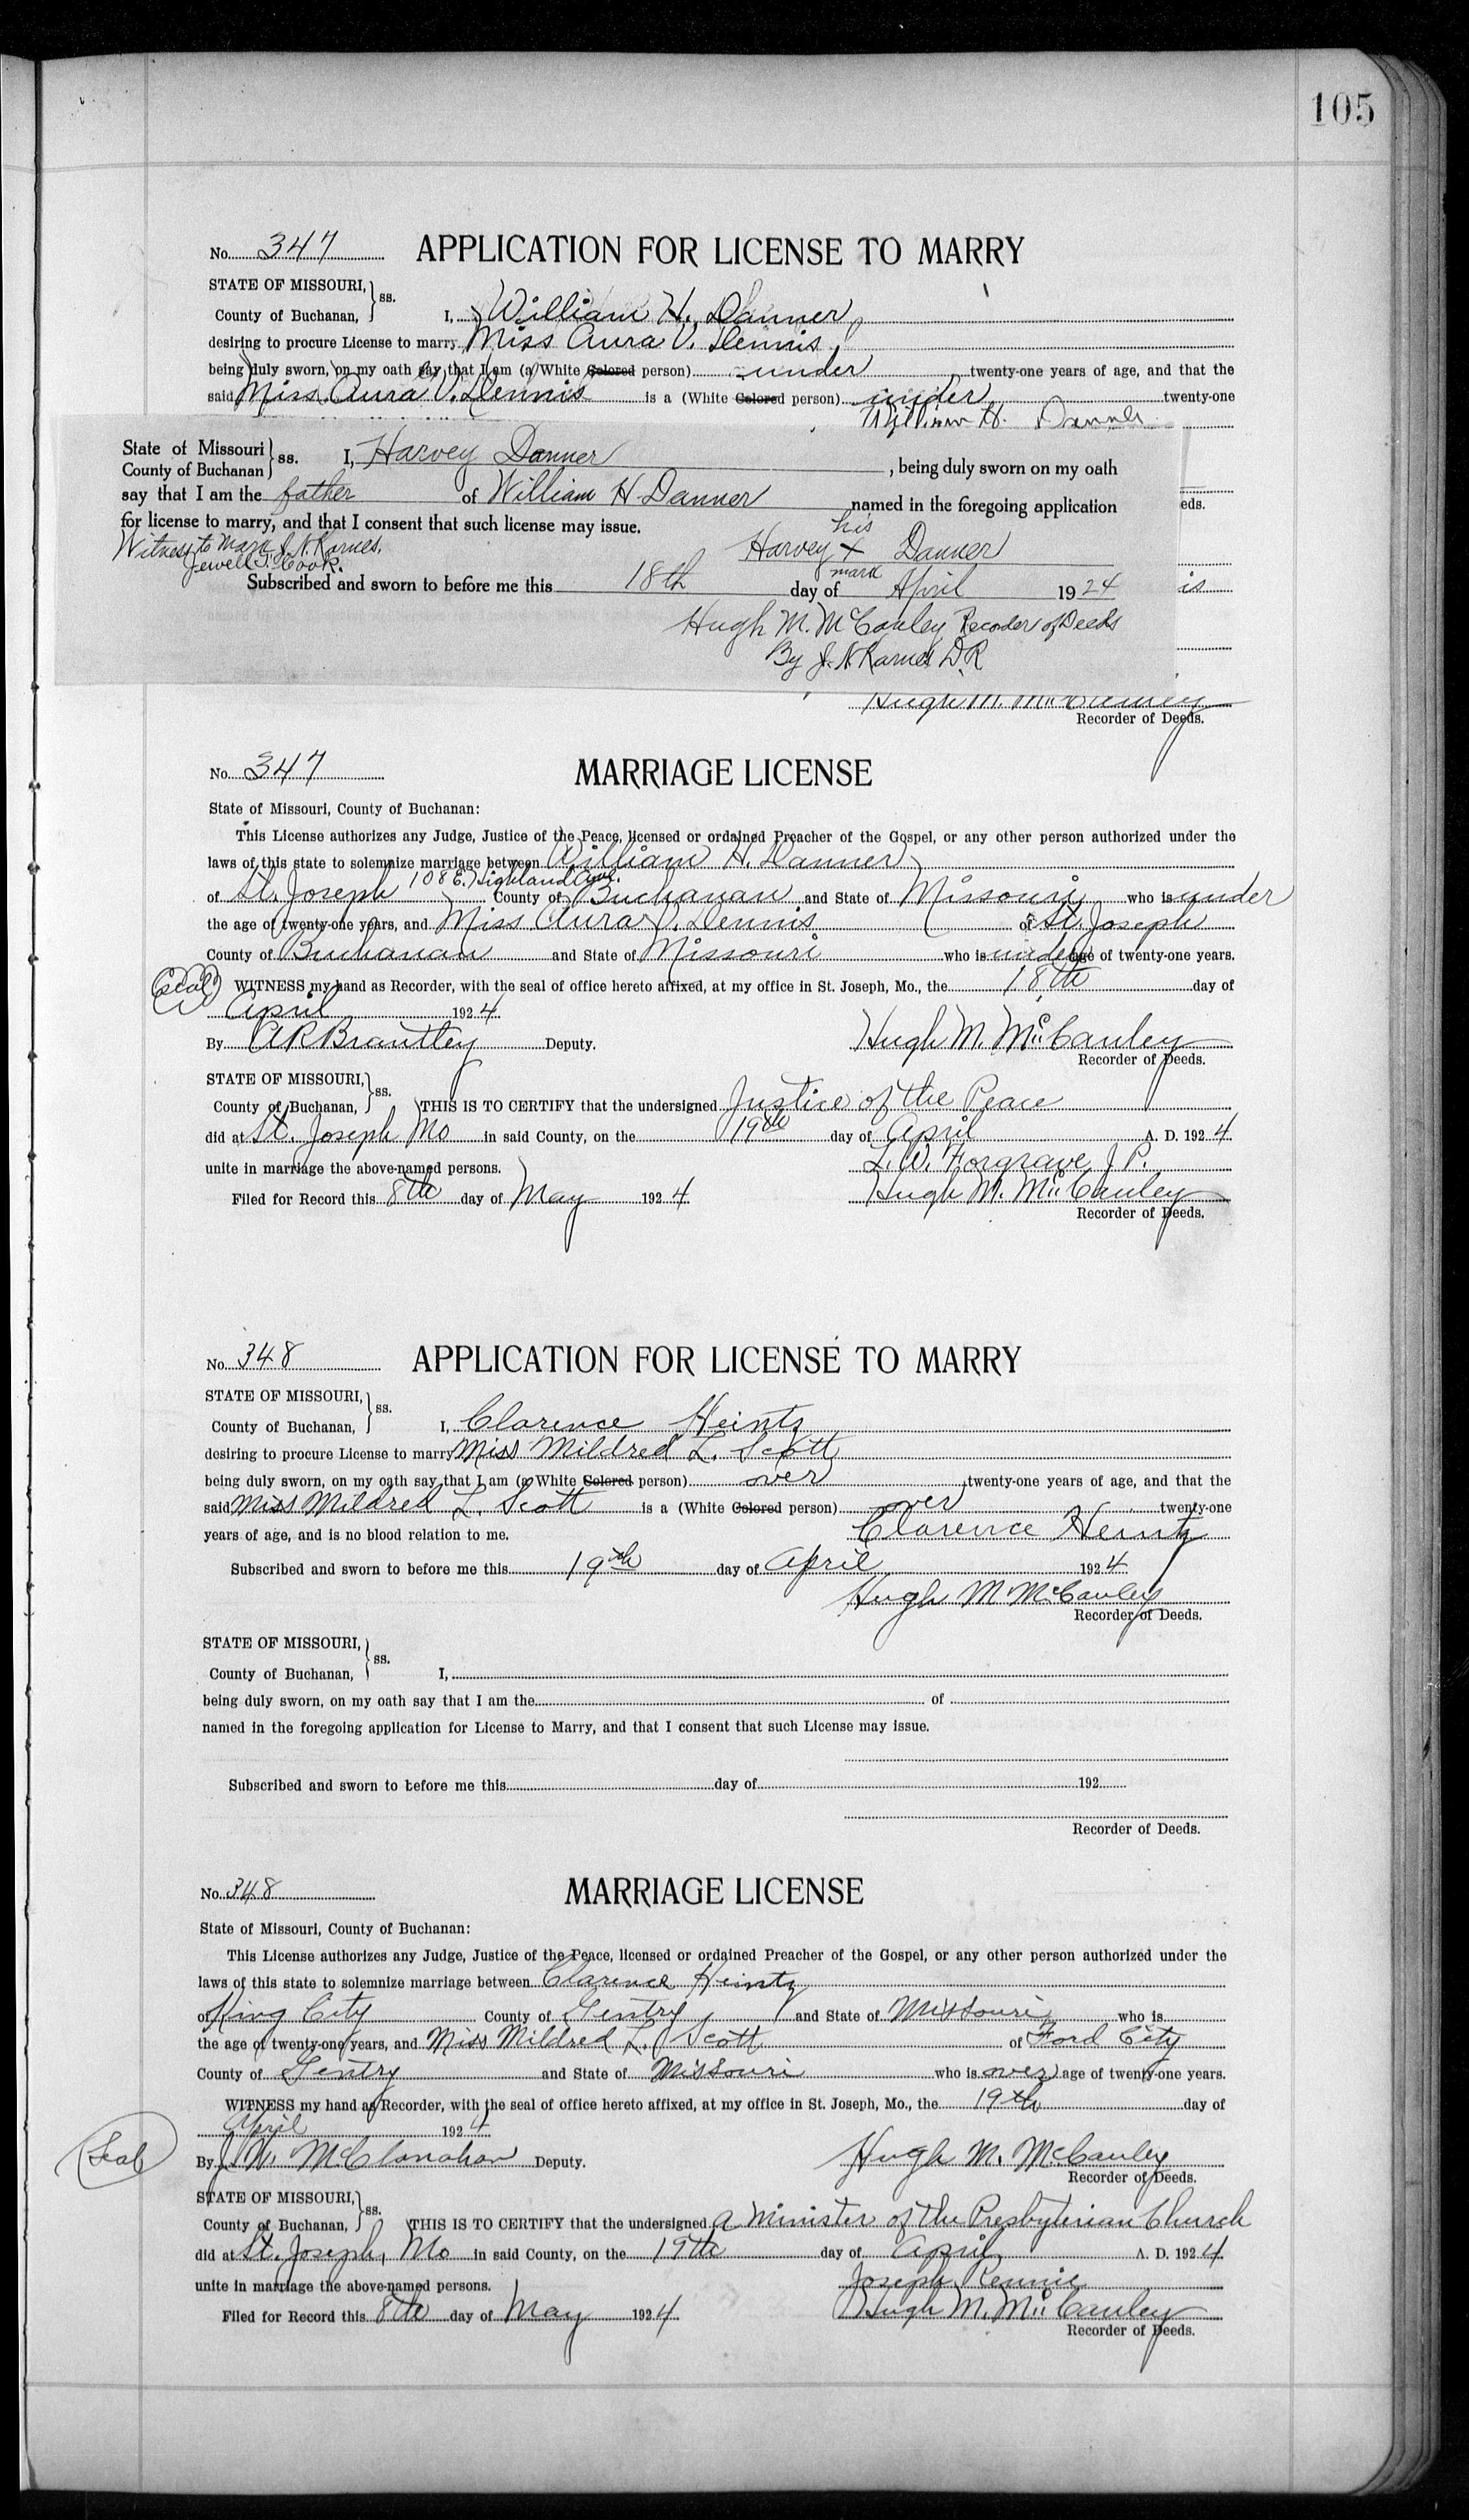 105
No. 347 APPLICATION FOR LICENSE TO MARRY
STATE OF MISSOURI, } ss.
County of Buchanan, I, William H. Danner
desiring to procure License to marry Miss Aura V. Dennis
being duly sworn, on my oath say that I am (a White Colored person) under twenty-one years of age, and that the
said Miss Aura V. Dennis is a (White Colored person) under twenty-one
William H. Danner
State of Missouri } ss. I, Harvey Danner, being duly sworn on my oath
County of Buchanan
say that I am the father of William H Danner named in the foregoing application
eds.
for license to marry, and that I consent that such license may issue.
Witness to Mark J. N. Karnes, his
Jewell T. Cook. Harvey X Danner
mark
Subscribed and sworn to before me this 18th day of April 1924
is
Hugh M. McCauley Recorder of Deeds
By J. N Karnes D.R
Hugh M. McCauley
Recorder of Deeds.
No. 347 MARRIAGE LICENSE
State of Missouri, County of Buchanan:
This License authorizes any Judge, Justice of the Peace, licensed or ordained Preacher of the Gospel, or any other person authorized under the
laws of this state to solemnize marriage between William H. Danner
of St. Joseph 108 E. Highland Ave. County of Buchanan and State of Missouri who is under
the age of twenty-one years, and Miss Aura V. Dennis of St. Joseph
County of Buchanan and State of Missouri who is under age of twenty-one years.
(Seal) WITNESS my hand as Recorder, with the seal of office hereto affixed, at my office in St. Joseph, Mo., the 18th day of
April 1924
By A R Brantley Deputy. Hugh M. McCauley
Recorder of Deeds.
STATE OF MISSOURI, } ss.
County of Buchanan, THIS IS TO CERTIFY that the undersigned Justice of the Peace
did at St. Joseph Mo in said County, on the 19th day of April A. D. 1924
unite in marriage the above-named persons. L. W. Forgrave J P.
Filed for Record this 8th day of May 1924 Hugh M. McCauley
Recorder of Deeds.
No. 348 APPLICATION FOR LICENSE TO MARRY
STATE OF MISSOURI, } ss.
County of Buchanan, I, Clarence Heintz
desiring to procure License to marry Miss Mildred L. Scott
being duly sworn, on my oath say that I am (a White Colored person) over twenty-one years of age, and that the
said Miss Mildred L. Scott is a (White Colored person) over twenty-one
years of age, and is no blood relation to me. Clarence Heintz
Subscribed and sworn to before me this 19th day of April 1924
Hugh M McCauley
Recorder of Deeds.
STATE OF MISSOURI, } ss.
County of Buchanan, I,
being duly sworn, on my oath say that I am the of
named in the foregoing application for License to Marry, and that I consent that such License may issue.
Subscribed and sworn to before me this day of 192
Recorder of Deeds.
No. 348 MARRIAGE LICENSE
State of Missouri, County of Buchanan:
This License authorizes any Judge, Justice of the Peace, licensed or ordained Preacher of the Gospel, or any other person authorized under the
laws of this state to solemnize marriage between Clarence Heintz
of King City County of Gentry and State of Missouri who is
the age of twenty-one years, and Miss Mildred L. Scott of Ford City
County of Gentry and State of Missouri who is over age of twenty-one years.
WITNESS my hand as Recorder, with the seal of office hereto affixed, at my office in St. Joseph, Mo., the 19th day of
April 1924
(Seal) By J. N. McClanahan Deputy. Hugh M. McCauley
Recorder of Deeds.
STATE OF MISSOURI, } ss.
County of Buchanan, THIS IS TO CERTIFY that the undersigned a Minister of the Presbyterian Church
did at St. Joseph, Mo in said County, on the 19th day of April A. D. 1924
unite in marriage the above-named persons. Joseph Rennie
Filed for Record this 8th day of May 1924 Hugh M. McCauley
Recorder of Deeds.